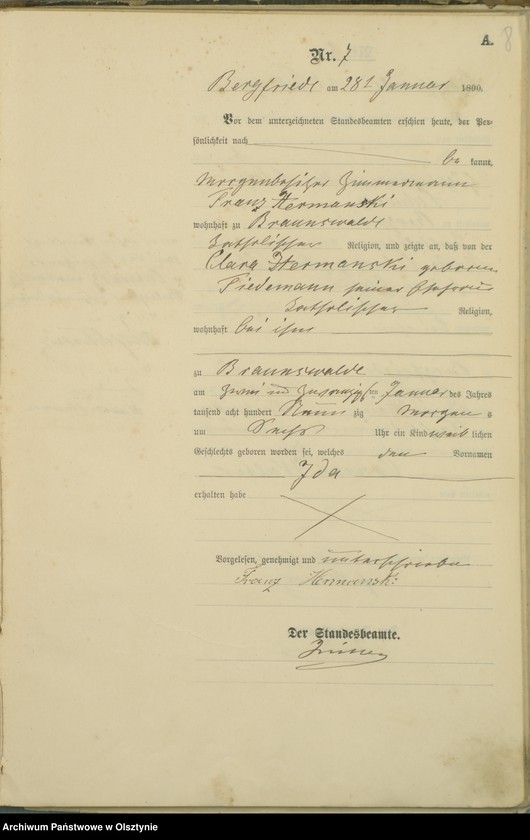 A. 8
Nr. 7
Bergfriede am 28t Januar 1890.
Vor dem unterzeichneten Standesbeamten erschien heute, der Per-
sönlichkeit nach
be kannt,
Morgenbesitzer Zimmermann
Franz Hermanski
wohnhaft zu Braunswalde
katholischer Religion, und zeigte an, daß von der
Clara Hermanski geborenen
Tiedemann seiner Ehefrau
katholischer Religion,
wohnhaft bei ihm
zu Braunswalde
am zwei und zwanzigsten Januar des Jahres
tausend acht hundert Neun zig Morgens
um Sechs Uhr ein Kind weib lichen
Geschlechts geboren worden sei, welches den Vornamen
Ida
erhalten habe
Vorgelesen, genehmigt und unterschrieben
Franz Hermanski
Der Standesbeamte.
Archiwum Państwowe w Olsztynie